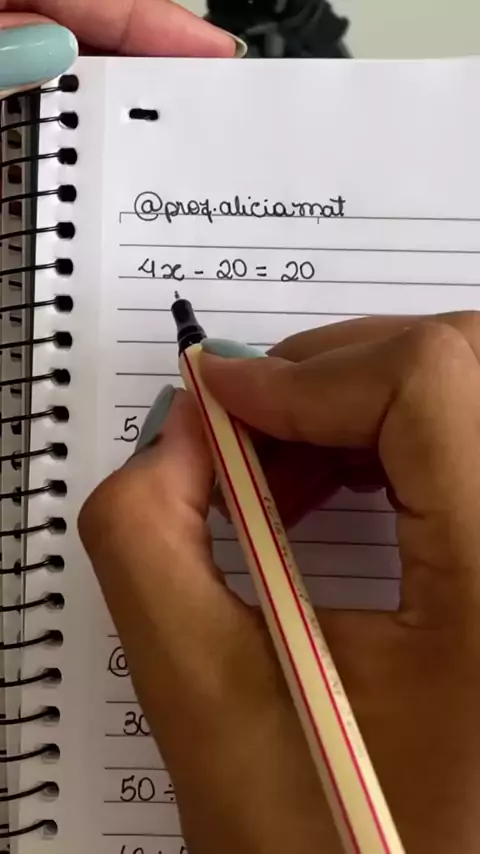 @prof.aliciamat
4x - 20 = 20
5
30
50 ÷